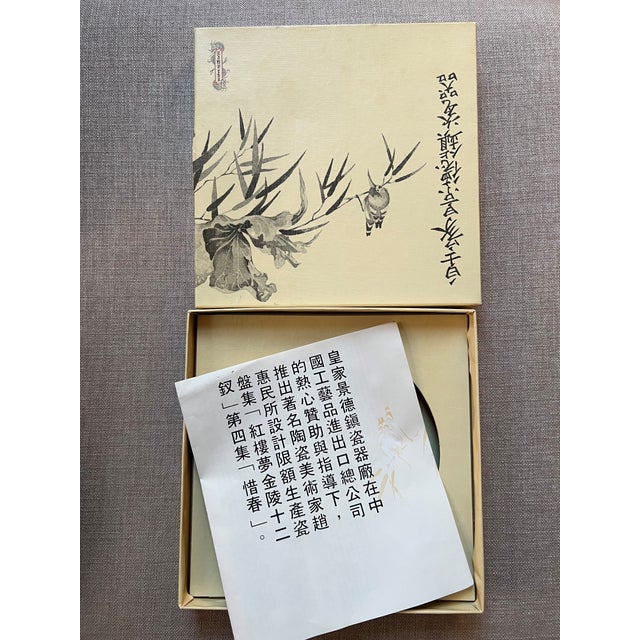 皇家景德鎮瓷器
皇家景德鎮瓷器廠在中
國工藝品進出口總公司
的熱心贊助與指導下，
推出著名陶瓷美術家趙
惠民所設計限額生產瓷
盤集「紅樓夢金陵十二
釵」第四集「惜春」。